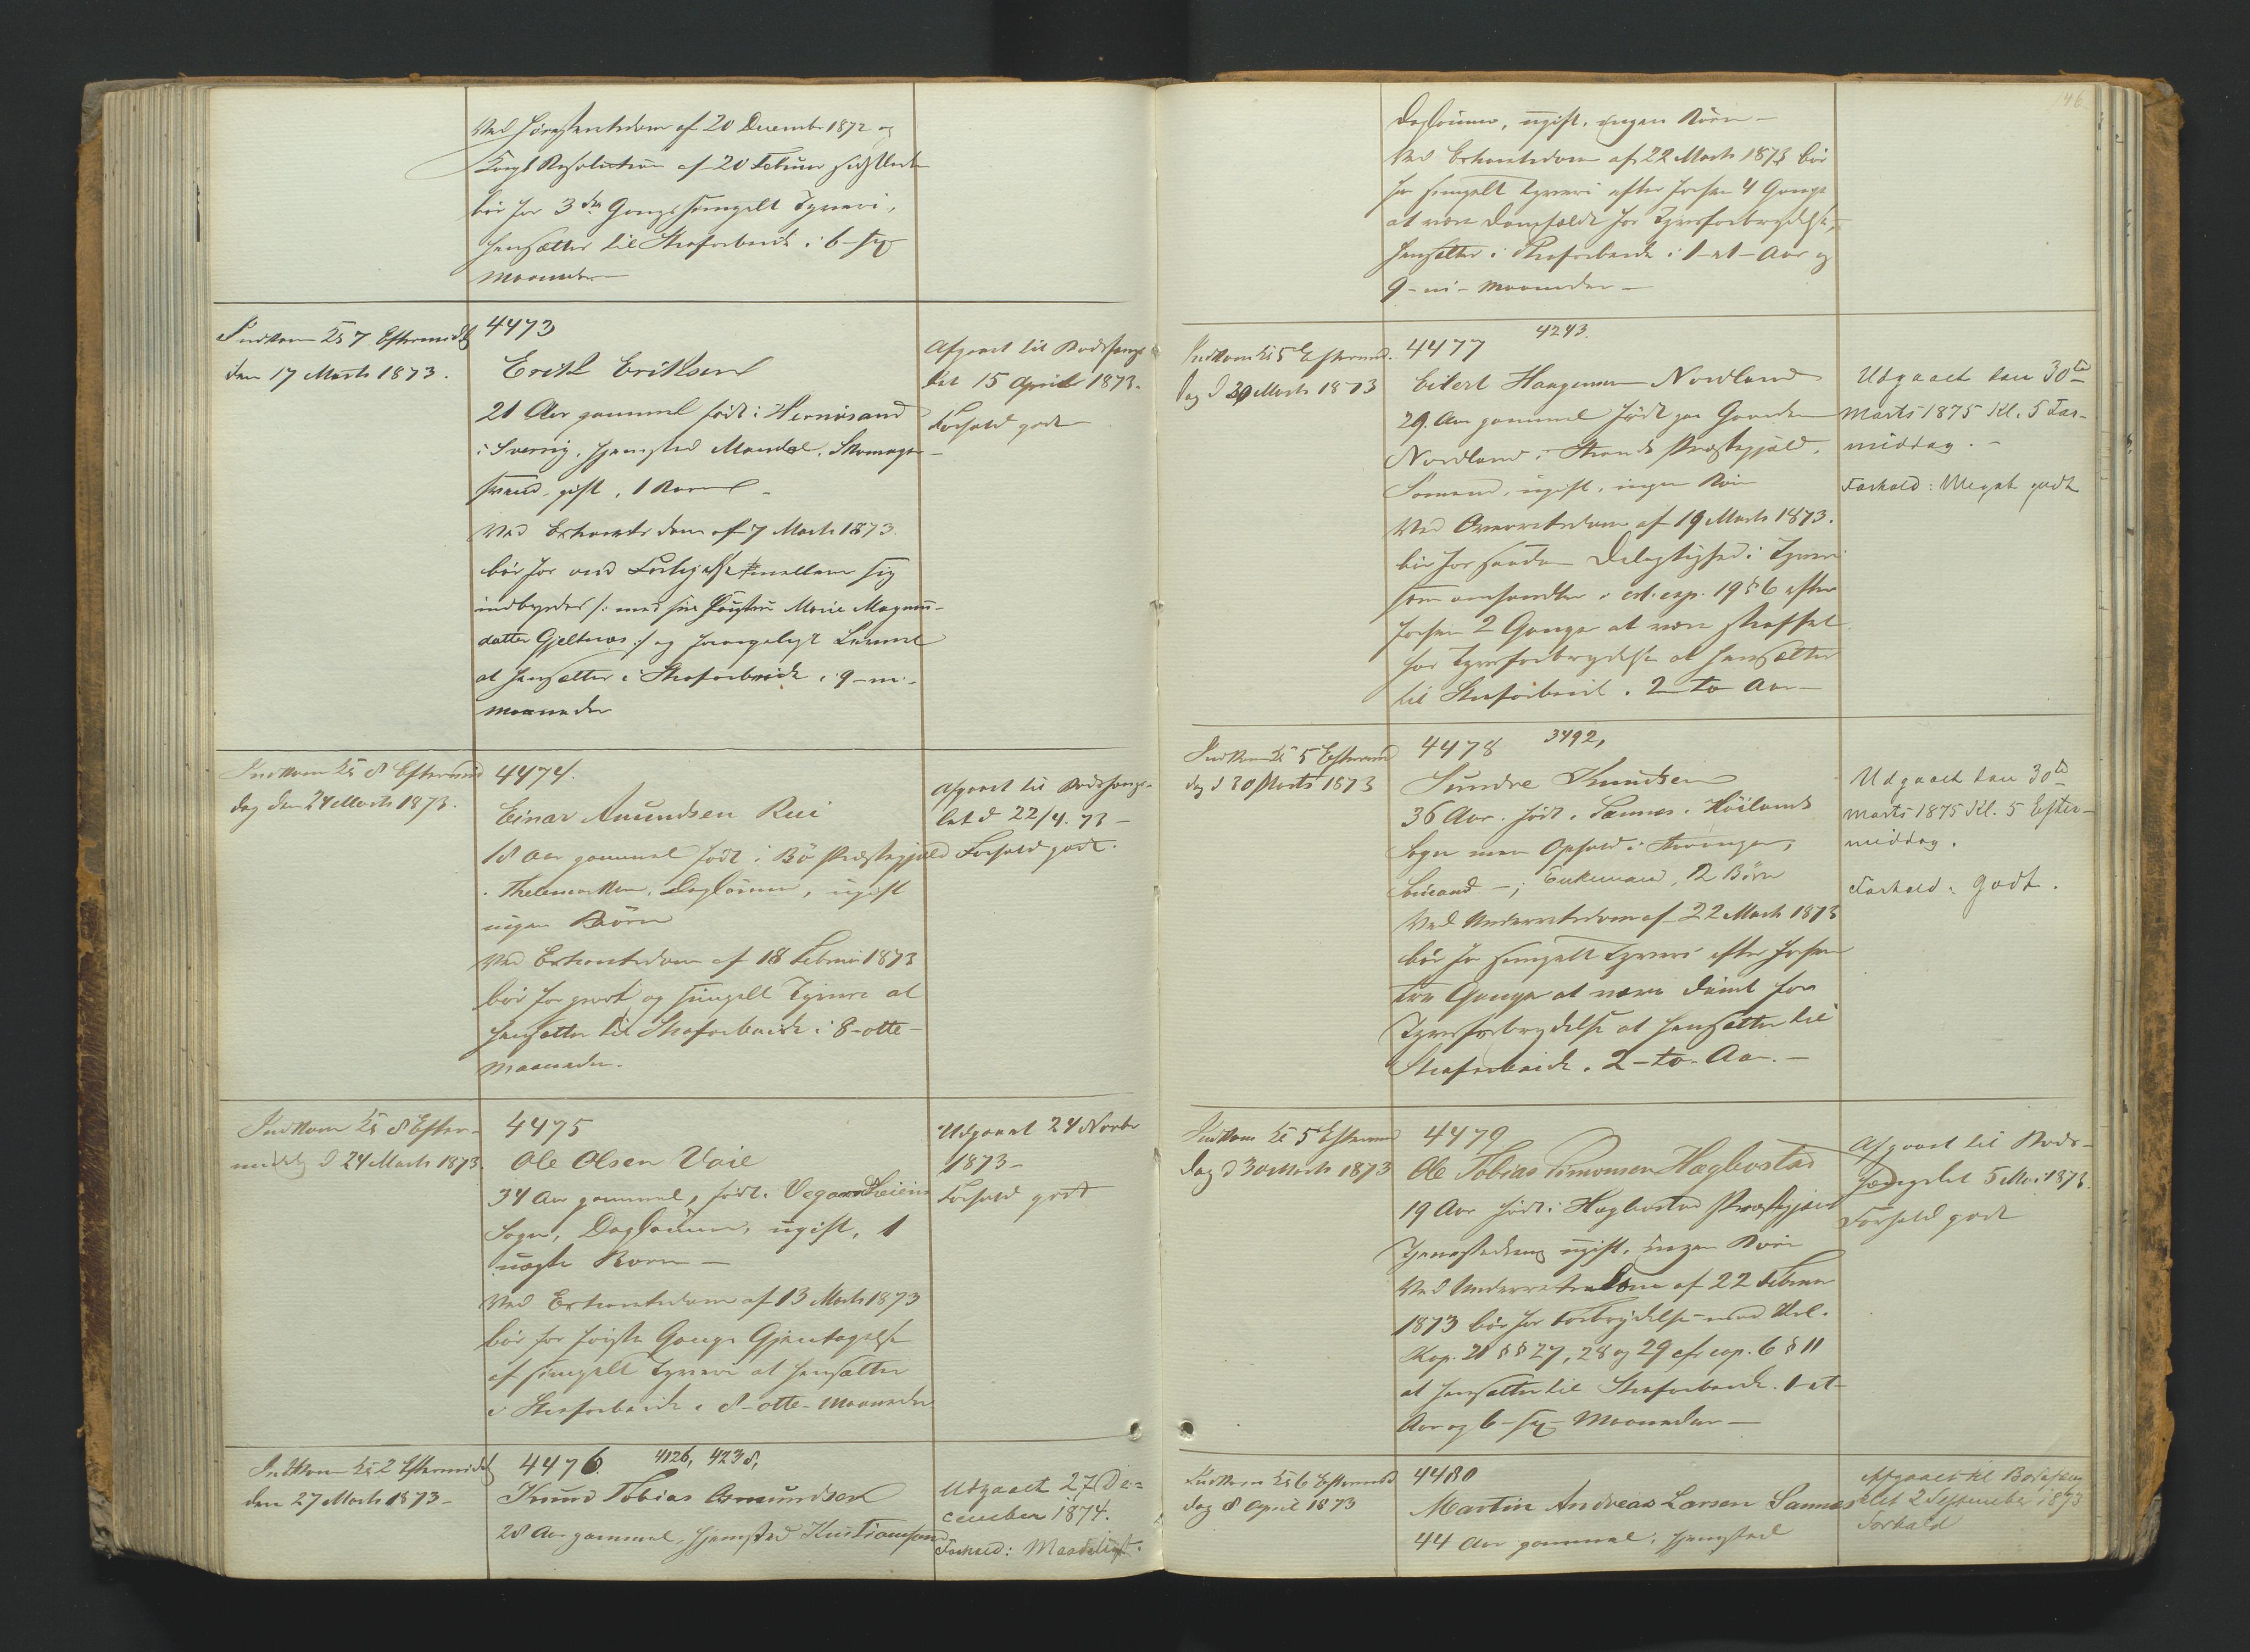 Ved Høiesteretsdom af 20 December 1872 og
Kongl Resolution af 20 Februar sidstleden
bør for 3die Gangs simpelt Tyveri,
hensættes til Strafarbeide i 6-sex
Maaneder
Indkom Kl 7 Eftermidg
den 17 Marts 1873.
4473
Erik Eriksen
21 Aar gammel født i Hernösand
i Sverrig, hjemsted Mandal, Skomager-
svend, gift, 1 Barn
Ved Extraretsdom af 7 Marts 1873
bør for ved mellem sig
indbyrdes /: med sin Hustru Marie Magnus-
datter Gjeltnæs :/ og
at hensættes i Strafarbeide i 9-ni-
Maaneder
Afgaaet til Bodsfængs-
let 15 April 1873.
Forhold godt
Indkom Kl 8 Eftermid
dag den 24 Marts 1873.
4474.
Einar Amundsen Rui
18 Aar gammel født i Bö Præstegjeld
i Thelemarken, Daglönner, ugift
ingen Börn
Ved Extraretsdom af 18 Februar 1873
bør for grovt og simpelt Tyveri at
hensættes til Strafarbeide i 8-otte-
Maaneder.
Afgaaet til Bodsfængs-
let d 22/4. 73 -
Forhold godt.
Indkom Kl 8 Efter-
middg d 24 Marts 1873.
4475
Ole Olsen Vaie
34 Aar gammel, født i Vegaardsheiens
Sogn, Daglönner, ugift, 1
uægte Barn -
Ved Extraretsdom af 13 Marts 1873
bør for første Gangs Gjentagelse
af simpelt Tyveri at hensættes
i Strafarbeide i 8-otte-Maaneder
Udgaaet 24 Novbr
1873-
Forhold godt
Indkom Kl 2 Eftermidg
den 27 Marts 1873-
4476. 4126, 4238,
Knud Tobias Asmundsen
28 Aar gammel, hjemsted Kristianssand
Udgaaet 27 De-
cember 1874.
Forhold: Maadeligt.
146
Daglönner, ugift, ingen Börn -
Ved Extraretsdom af 22 Marts 1873 bör
for simpelt Tyveri efter forhen 4 Gange
at være domfældt for Tyvsforbrydelse,
hensættes i Strafarbeide i 1-et-Aar og
9-ni-Maaneder -
Indkom Kl 5 Eftermid.
dag d 30 Marts 1873
4477 4243.
Eilert Haagensen Nordland
29 Aar gammel født paa Gaarden
Nordland i Strands Præstegjæld,
Sömand, ugift, ingen Börn
Ved Overretsdom af 19 Marts 1873.
bör for saadan Delagtighed i Tyveri
som omhandles i crl. cap. 19 § 6 efter
forhen 2 Gange at være straffet
for Tyvsforbrydelse at hensættes
til Strafarbeid i 2-to Aar -
Udgaaet den 30te
Marts 1875 Kl. 5 For-
middag. -
Forhold: Meget godt
Indkom Kl 5 Eftermid
dag d 30 Marts 1873
4478 3492,
Sundre Knudsen
36 Aar. født i Sannes i Höilands
Sogn men Ophold i Stavanger,
Sömand -, Enkemand, 2 Börn
Ved Underretsdom af 22 Marts 1873
bör for simpelt Tyveri efter forhen
tre Gange at være dömt for
Tyvsforbrydelse at hensættes til
Strafarbeide i 2-to-Aar. -
Udgaaet den 30te
Marts 1875 Kl. 5 Efter-
middag.
Forhold: godt.
Indkom Kl 5 Eftermid
dag d 30 Marts 1873
4479
Ole Tobias Simonsen Hægbostad
19 Aar født i Hægbostad Præstegjæld
Tjenestedreng ugift, ingen Börn
Ved Underretsdom af 22 Februar
1873 bör for Forbrydelse mod Crl.
Kap. 21 §§ 27, 28 og 29 cfr cap. 6 § 11
at hensættes til Strafarbeide i 1-et-
Aar og 6-sex-Maaneder -
Afgaaet til Bods-
fængslet 5 Mai 1873.
Forhold godt
Indkom Kl 6 Eftermid
dag 8 April 1873
4480
Martin Andreas Larsen Sannes
44 Aar gammel, hjemsted
Afgaaet til Bodsfæng
slet 2 September 1873
Forhold